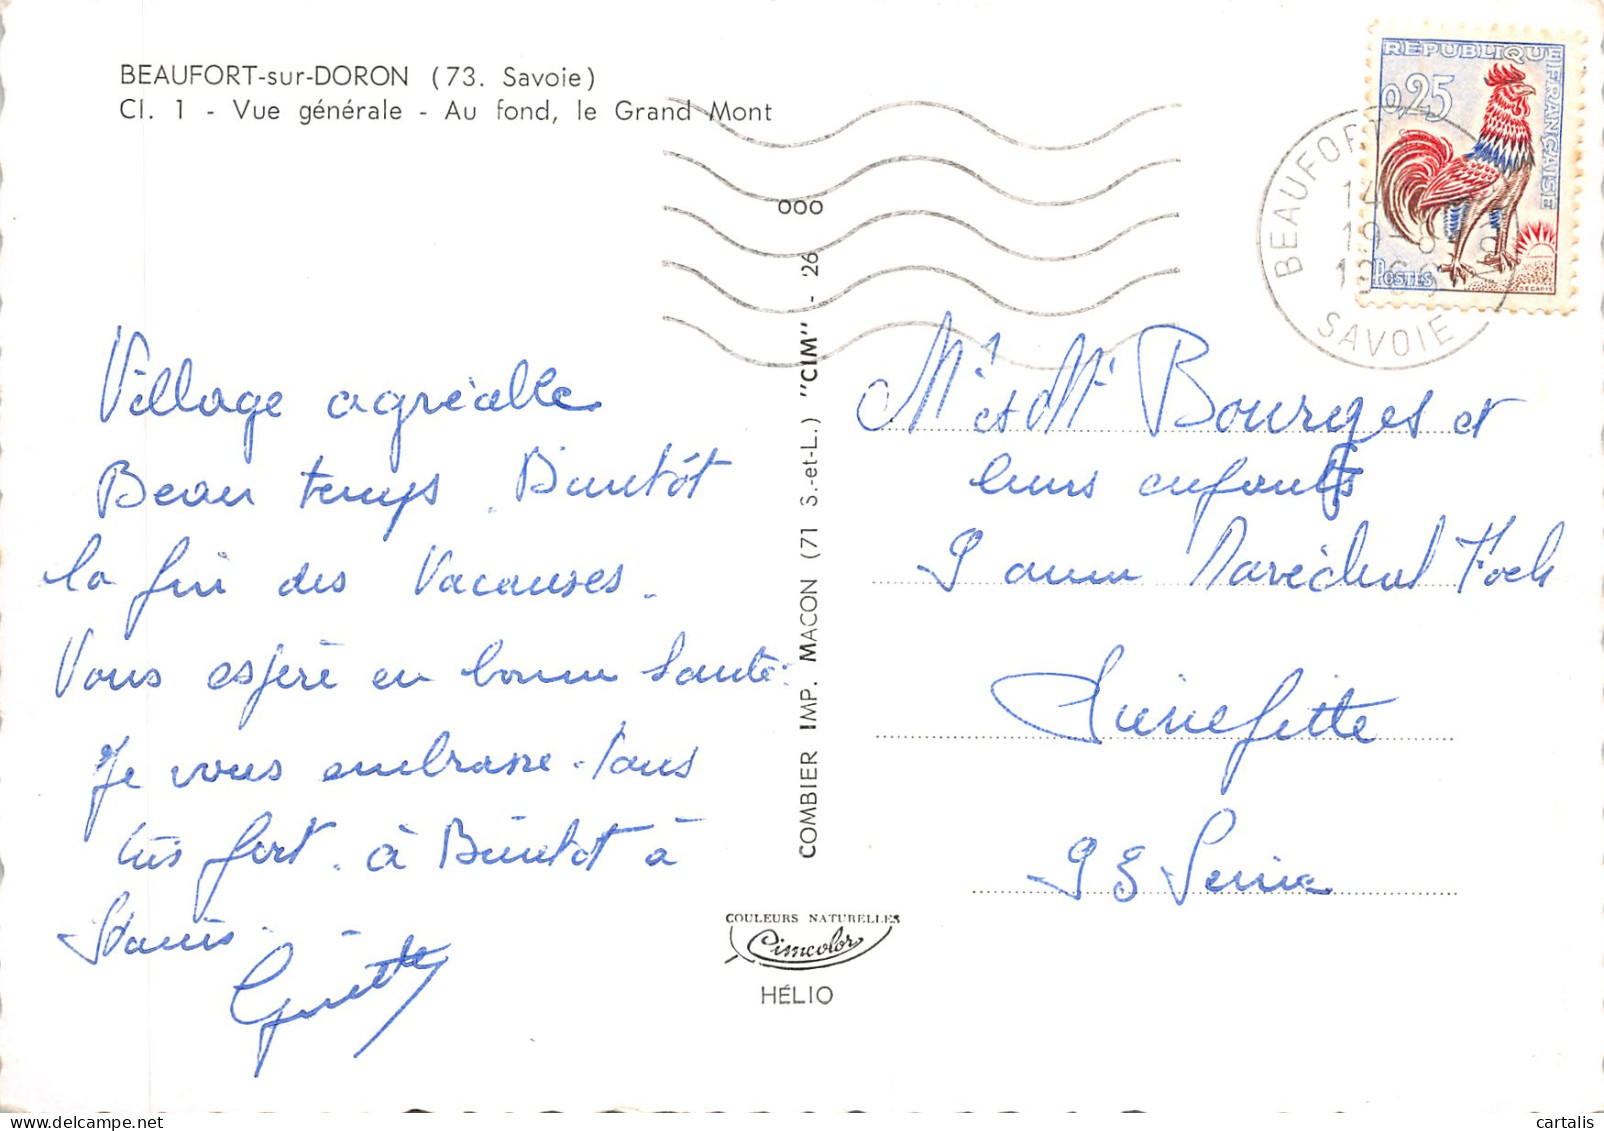 BEAUFORT-sur-DORON (73. Savoie)
Cl. 1 - Vue générale - Au fond, le Grand Mont
Village agréable
Beau temps. Bientôt
la fin des Vacances.
Vous espère en bonne Santé.
Je vous embrasse tous
très fort. à Bientôt à
Stains.
Ginette
COMBIER IMP. MACON (71 S.-et-L.) "CIM" - 26
ooo
COULEURS NATURELLES
Cimcolor
HÉLIO
REPUBLIQUE FRANÇAISE
0,25
POSTES
DECARIS
BEAUFORT
SAVOIE
Mr et Me Bourges et
leurs enfants
9 Maréchal Foch
Pierrefitte
93 Seine
cartalis